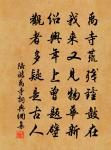 禹寺荒殘鐘鼓在
我來又見物華新
紹興年上曾題壁
觀者多疑是古人
陸游禹寺詞典網集